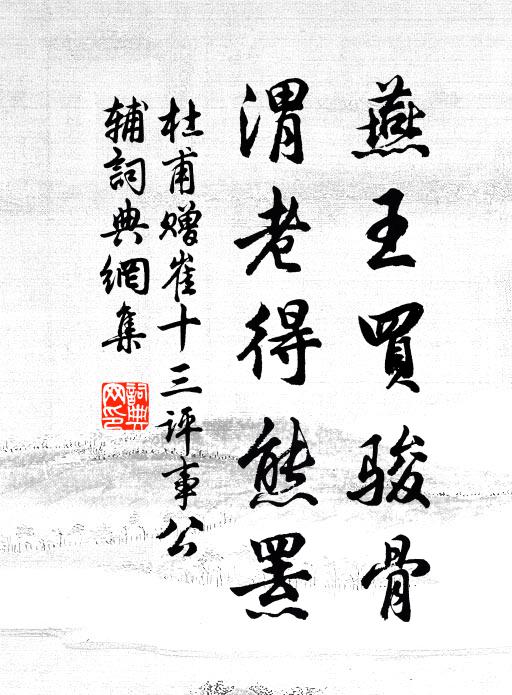 燕王買駿骨
渭老得熊罴
杜甫贈崔十三评事公
辅詞典網集
詞典
网印